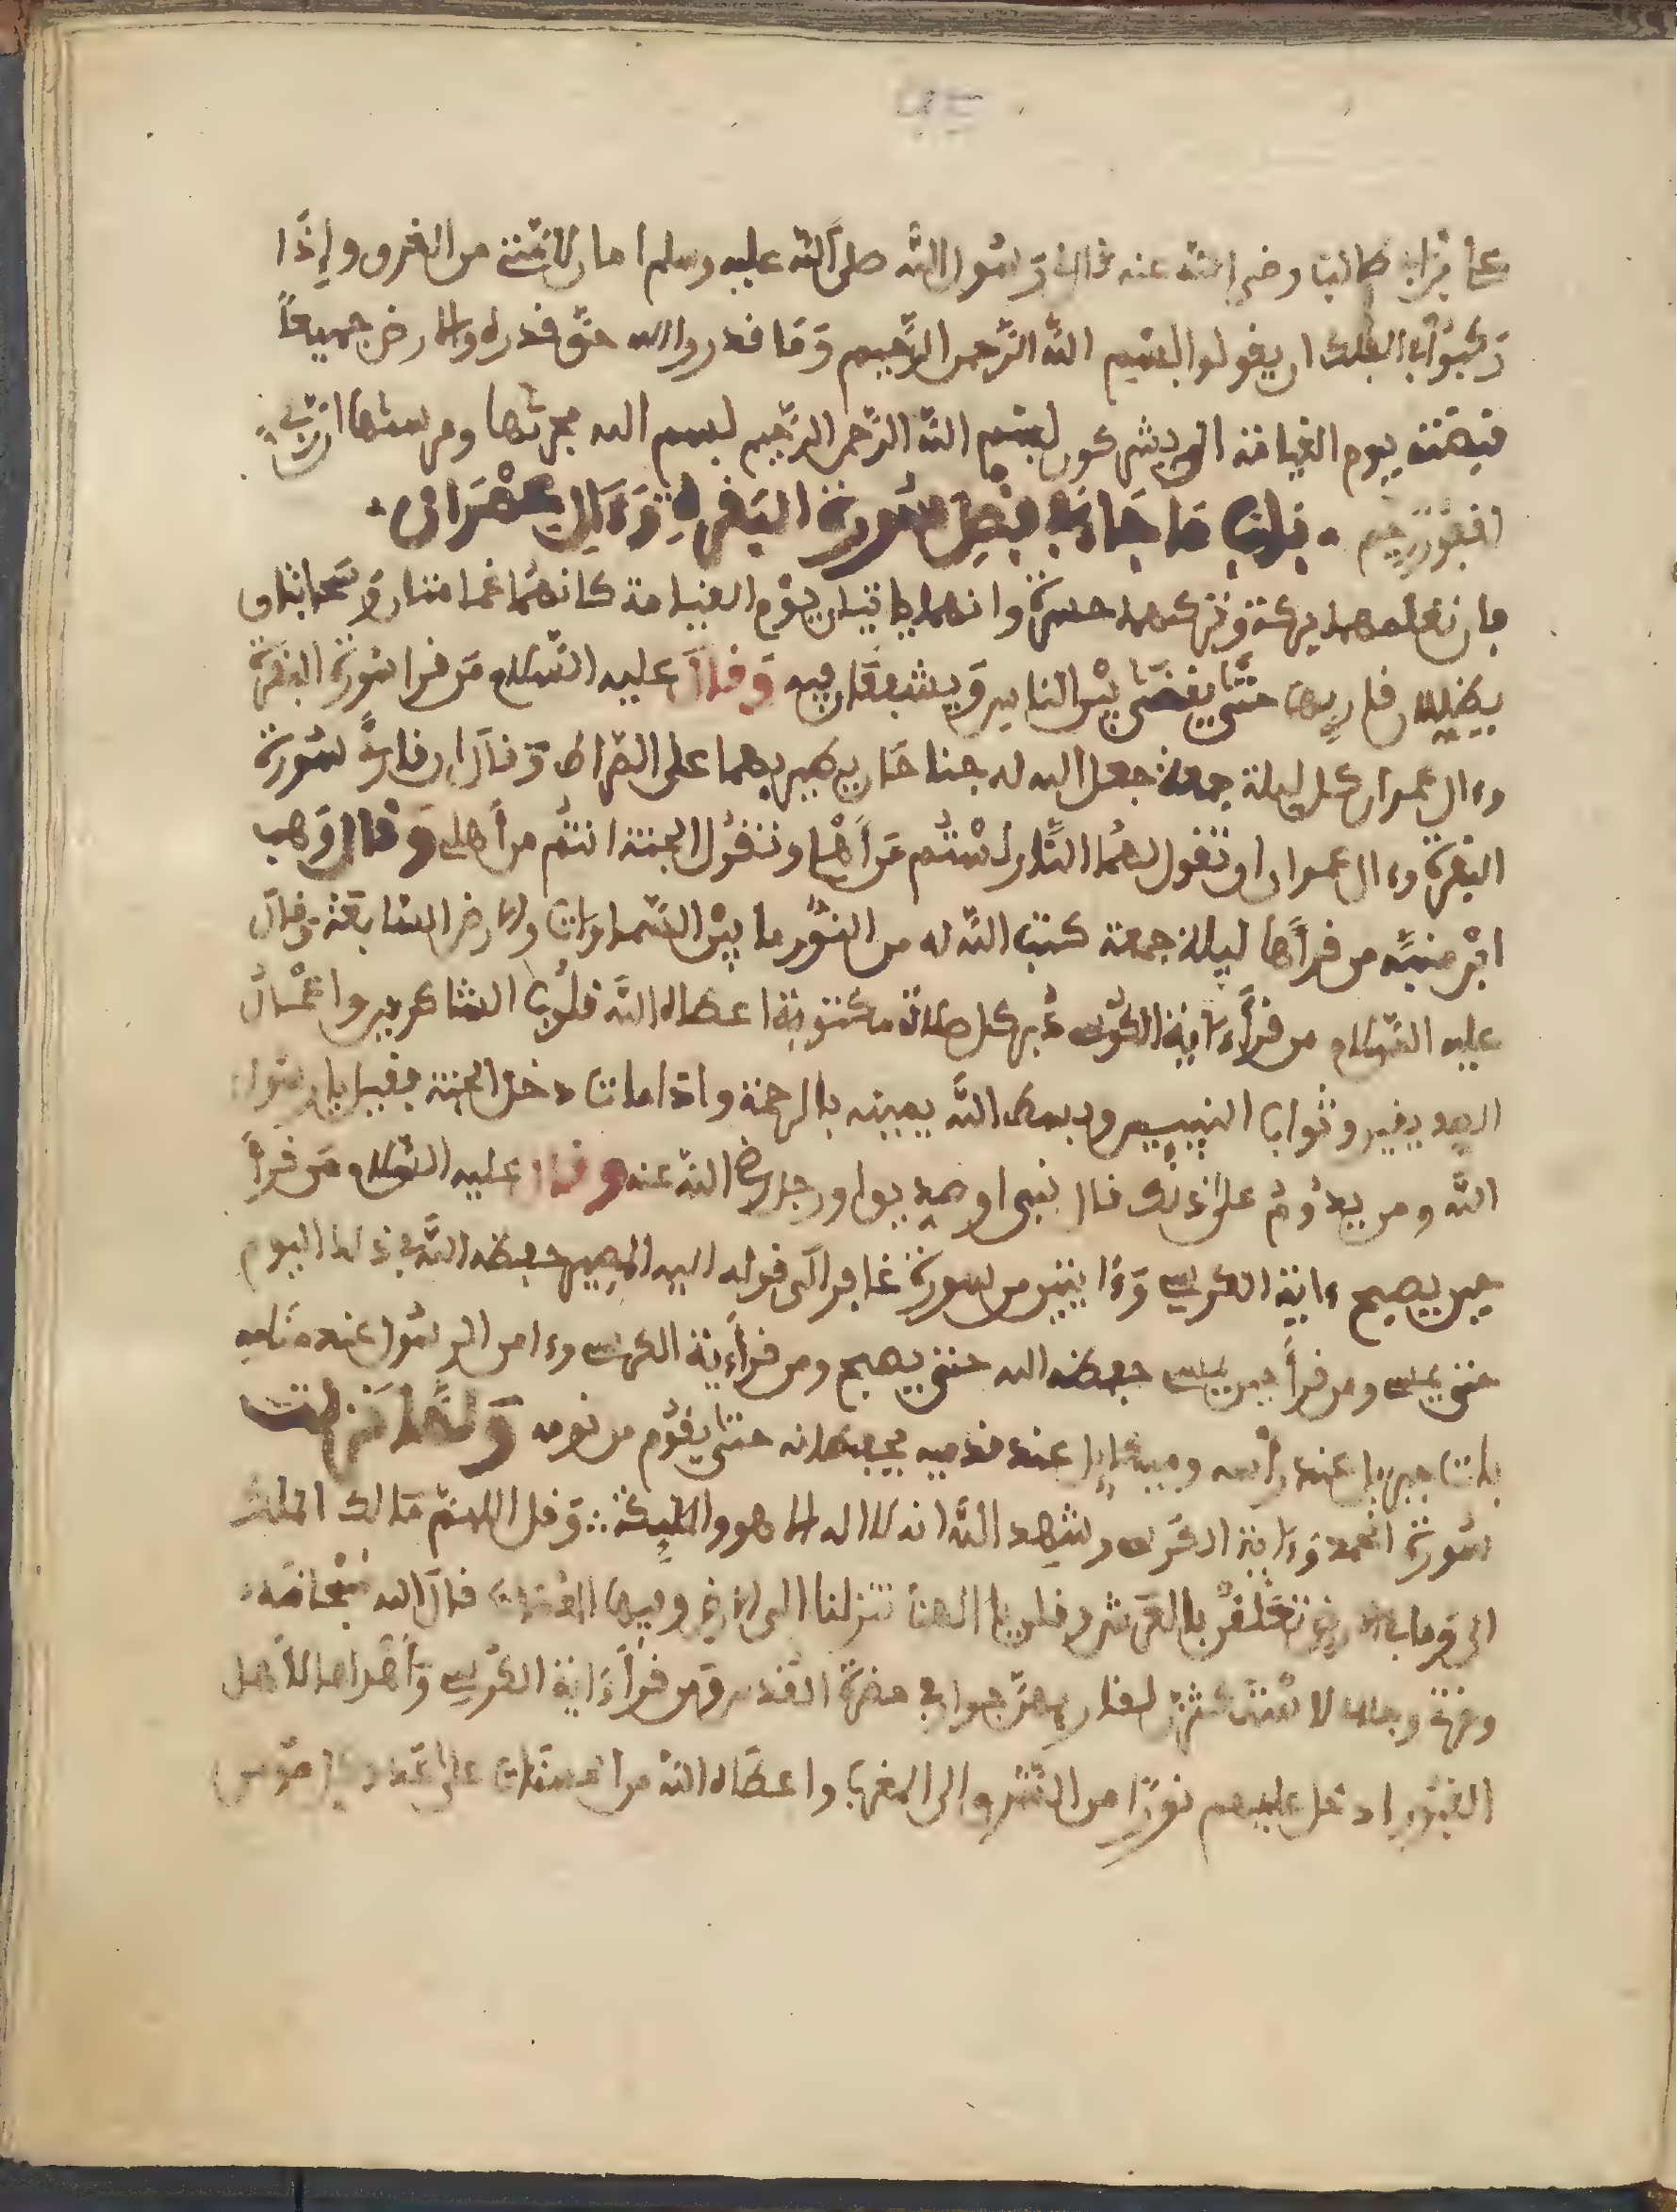 علي بن أبي طالب رضي الله عنه قال قال رسول الله صلى الله عليه وسلم امان لامتي من الغرق وإذا
ركبوا في الفلك ان يقولوا بسم الله الرحمن الرحيم وما قدروا الله حق قدره والارض جميعا
قبضته يوم القيامة الى يشركون بسم الله الرحمن الرحيم بسم الله مجريها ومرسيها ان ربي
لغفور رحيم باب ما جاء في فضل سورة البقرة وءال عمران
فان تعلمهما بركة وتركهما حسرة وانهما ياتيان يوم القيامة كانهما غمامتان وسحابتان
يظلان قاريهما حتى يقضى بين الناس ويشفعان فيه وقال عليه السلام من قرا سورة البقرة
وءال عمران كل ليلة جمعة جعل الله له جناحان يطير بهما على الصراط وقال ان قارئ سورة
البقرة وءال عمران تقول لهم النار لستم من أهلي وتقول الجنة انتم من أهلي وقال وهب
ابن منبه من قرأها ليلة جمعة كتب الله له من النور ما بين السماوات والارض السابعة وقال
عليه السلام من قرأ ءاية الكرسي دبر كل صلاة مكتوبة اعطاه الله قلوب الشاكرين واعمال
الصديقين وثواب النبيين وبسط الله يمينه بالرحمة واذا مات دخل الجنة فقيل يا رسول
الله ومن يدوم على ذلك قال نبي او صديق او رجل رضي الله عنه وقال عليه السلام من قرأ
حين يصبح ءاية الكرسي وءايتين من سورة غافر الى قوله اليه المصير حفظه الله في ذلك اليوم
حتى يمسي ومن قرأ حين يمسي حفظه الله حتى يصبح ومن قرأ ءية الكرسي وءامن الرسول عند منامه
بات جبريل عند رأسه وميكايل عند قدميه يحفظانه حتى يقوم من نومه ولما نزلت
سورة الحمد وءاية الكرسي وشهد الله انه لا اله الا هو والمليكة وقل اللهم مالك الملك
تعلقن بالعرش وقلن يا الهنا تنزلنا الى الارض وفيها قال الله سبحانه
وعزتي وجلالي في حضرة القدس ومن قرأ ءاية الكرسي وأهداها لأهل
القبور ادخل عليهم نورا من المشرق الى المغرب واعطاه الله من الحسنات على عدد